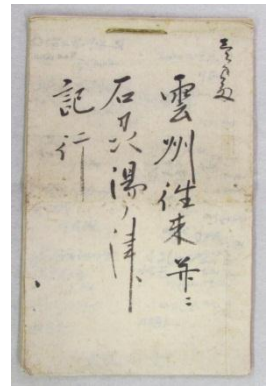 雲州往来并ニ
石見湯ノ津
記行